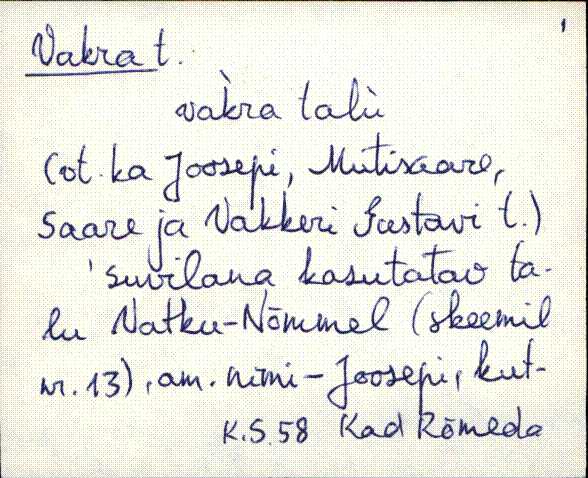 1
Vakra t.
vàkra talù
(ot. ka Joosepi, Mutisaare,
Saare ja Vakkeri Gustavi t.)
'suvilana kasutatav ta-
lu Natku-Nõmmel (skeemil
nr. 13), am. nimi - Joosepi, kut-
K.S. 58 Kad Rõmeda